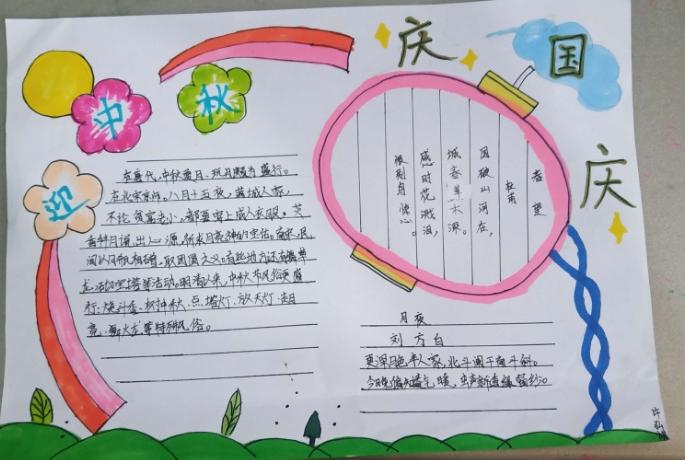 中秋
迎
庆国庆
在唐代，中秋赏月、玩月颇为盛行。
在北宋京师。八月十五夜，满城人家，
不论贫富老小，都要穿上成人衣服。焚
香拜月说出心愿，祈求月亮神的保佑。南宋，民
间以月饼相赠，取团圆之义。有些地方还有舞草
龙，砌宝塔等活动。明清以来，中秋节风俗更盛
行；烧斗香、树中秋、点塔灯、放天灯、走月
亮、舞火龙等特殊风俗。
春望
杜甫
国破山河在，
城春草木深。
感时花溅泪，
恨别鸟惊心。
月夜
刘方白
更深月色半人家，北斗阑干南斗斜。
今夜偏知春气暖，虫声新透绿窗纱。
许